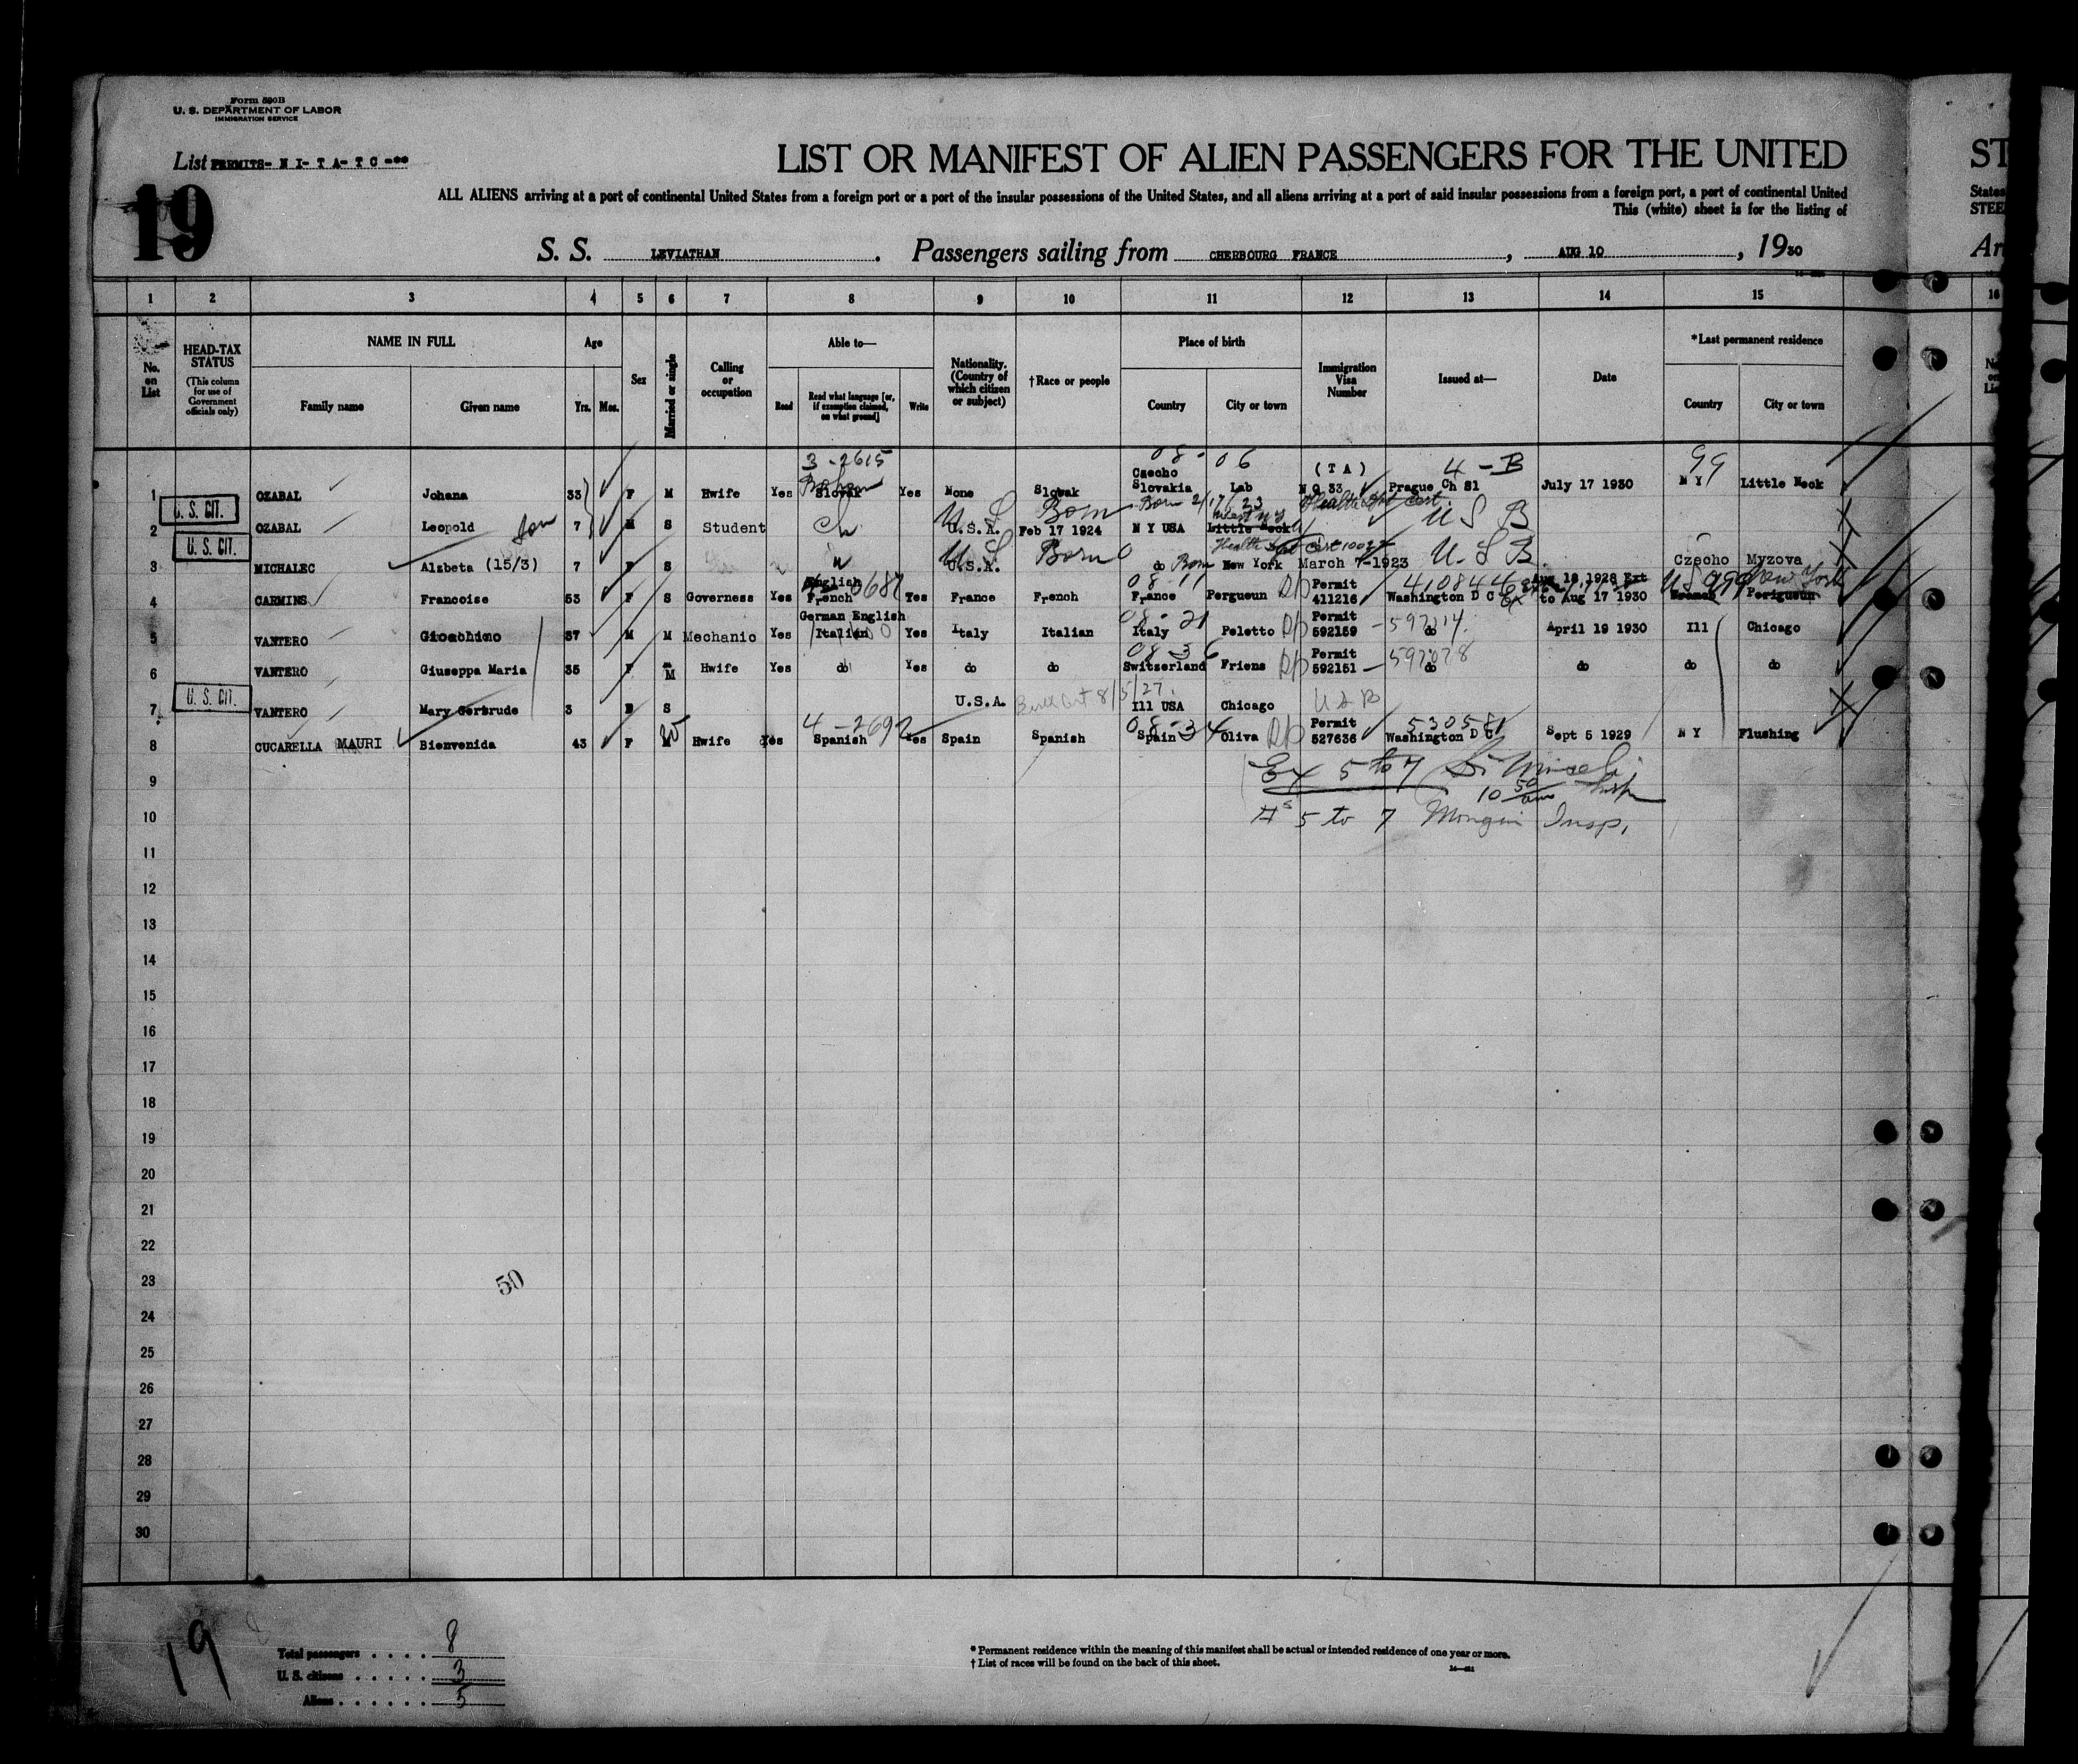 Form 590B
U. S. DEPARTMENT OF LABOR
IMMIGRATION SERVICE
List PERMITS- N I- T A- T C -**
19
LIST OR MANIFEST OF ALIEN PASSENGERS FOR THE UNITED
ST
ALL ALIENS arriving at a port of continental United States from a foreign port or a port of the insular possessions of the United States, and all aliens arriving at a port of said insular possessions from a foreign port, a port of continental United
States
This (white) sheet is for the listing of
S. S. LEVIATHAN. Passengers sailing from CHERBOURG FRANCE, AUG 10, 1930
1 2 3 4 5 6 7 8 9 10 11 12 13 14 15 16
No. on List
HEAD-TAX STATUS (This column for use of Government officials only)
NAME IN FULL
Family name Given name
Age
Yrs. Mos.
Sex
Married or single
Calling or occupation
Able to—
Read Read what language [or, if exemption claimed, on what ground] Write
Nationality. (Country of which citizen or subject)
†Race or people
Place of birth
Country City or town
Immigration Visa Number
Issued at—
Date
*Last permanent residence
Country City or town
3-2615 08-06 4-B 99
1 OZABAL Johana 33 F M Hwife Yes Slovak Yes None Slovak Czecho Slovakia Lab (T A) N Q 33 Prague Ch Sl July 17 1930 N Y Little Neck
U. S. CIT.
Born 2/17/23 Health Cert.
2 OZABAL Leopold son 7 M S Student Ch U.S.A. Born Feb 17 1924 N Y USA Little Neck U S B
U. S. CIT.
3 MICHALEC Alzbeta (15/3) 7 F S U.S.A. Born do Born New York March 7-1923 U S B Czecho Myzova
08-11
4 CARMINS Francoise 53 F S Governess Yes English French Yes France French France Pergueun Permit 411216 Washington D C Aug 18 1928 Ext to Aug 17 1930 New York Perigueun
08-21
5 VANTERO Gioachimo 37 M M Mechanic Yes German English Italian Yes Italy Italian Italy Peletto Permit 592159 do April 19 1930 Ill Chicago
08-36
6 VANTERO Giuseppa Maria 35 F M Hwife Yes do Yes do do Switzerland Friens Permit 592151 do do do do
U. S. CIT.
7 VANTERO Mary Gertrude 3 S U.S.A. 8/5/27 Ill USA Chicago U S B
4-2692 08-34 530581
8 CUCARELLA MAURI Bienvenida 43 F M Hwife Yes Spanish Yes Spain Spanish Spain Oliva Permit 527636 Washington D C Sept 5 1929 N Y Flushing
9
Ex 5 to 7
10 50 am Insp
10
5 to 7 Mongin Insp.
11
12
13
14
15
16
17
18
19
20
21
22
23
50
24
25
26
27
28
29
30
19
Total passengers . . . . 8
U. S. citizens . . . . . 3
Aliens . . . . . . 5
* Permanent residence within the meaning of this manifest shall be actual or intended residence of one year or more.
† List of races will be found on the back of this sheet.